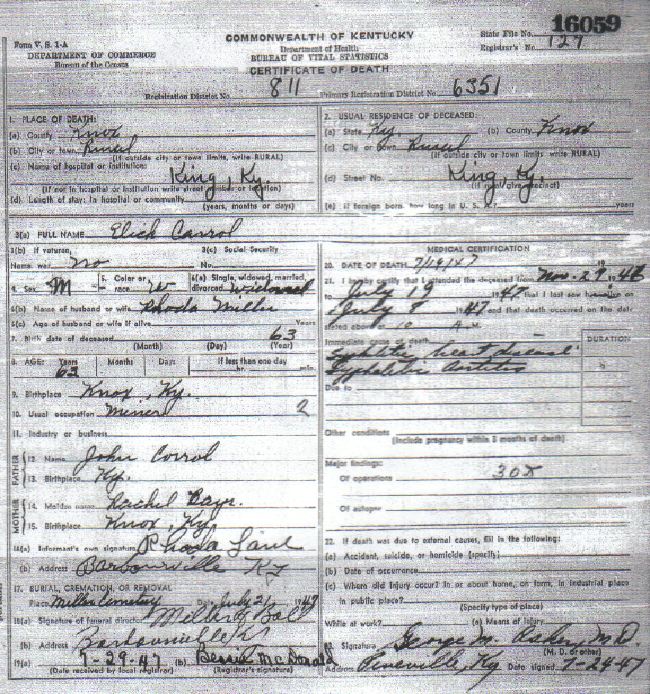 16059
Form V. S. 1-A
COMMONWEALTH OF KENTUCKY
State File No.
DEPARTMENT OF COMMERCE
Department of Health
Registrar's No. 127
Bureau of the Census
BUREAU OF VITAL STATISTICS
CERTIFICATE OF DEATH
Registration District No. 811 Primary Registration District No. 6351
1. PLACE OF DEATH:
(a) County Knox
(b) City or town Rural
(If outside city or town limits, write RURAL)
(c) Name of hospital or institution:
King, Ky.
(If not in hospital or institution write street number or location)
(d) Length of stay: In hospital or community
(years, months or days)
2. USUAL RESIDENCE OF DECEASED:
(a) State Ky. (b) County Knox
(c) City or town Rural
(If outside city or town limits, write RURAL)
(d) Street No. King, Ky.
(If rural give precinct)
(e) If foreign born, how long in U. S. A.? years
3(a) FULL NAME Elick Carrol
3(b) If veteran, 3(c) Social Security
Name war no No.
4. Sex M 5. Color or race W 6(a) Single, widowed, married, divorced Widowed
6(b) Name of husband or wife Rhoda Miller
6(c) Age of husband or wife if alive Years
7. Birth date of deceased 63
(Month) (Day) (Year)
8. AGE: Years Months Days If less than one day
63 hr. min.
9. Birthplace Knox, Ky.
10. Usual occupation Miner 2
11. Industry or business
FATHER
12. Name John Corrol
13. Birthplace Ky.
MOTHER
14. Maiden name Rachel
15. Birthplace Knox, Ky.
16(a) Informant's own signature Rhoda
(b) Address Barbourville Ky
17. BURIAL, CREMATION, OR REMOVAL
Place Miller Cemetery Date July 21 1947
18(a) Signature of funeral director Ball
(b) Address Barbourville Ky
19(a) 7-29-47 (b) Bessie McDonald
(Date received by local registrar) (Registrar's signature)
MEDICAL CERTIFICATION
20. DATE OF DEATH 7/19/47
21. I hereby certify that I attended the deceased from Nov. 29, 1946
to July 19 1947 that I last saw him alive on
July 8 1947 and that death occurred on the date
stated above at 10 A.M.
Immediate cause of death
DURATION
Syphilitic heart disease
Syphilitic Aortitis
Due to
Other conditions
(Include pregnancy within 3 months of death)
Major findings:
Of operations 30X
Of autopsy
22. If death was due to external causes, fill in the following:
(a) Accident, suicide, or homicide (specify)
(b) Date of occurrence
(c) Where did injury occur? In or about home, on farm, in industrial place
in public place?
(Specify type of place)
While at work? (e) Means of injury
Signature George M. Asher, M.D.
(M. D. or other)
Address Pineville, Ky Date signed 7-24-47